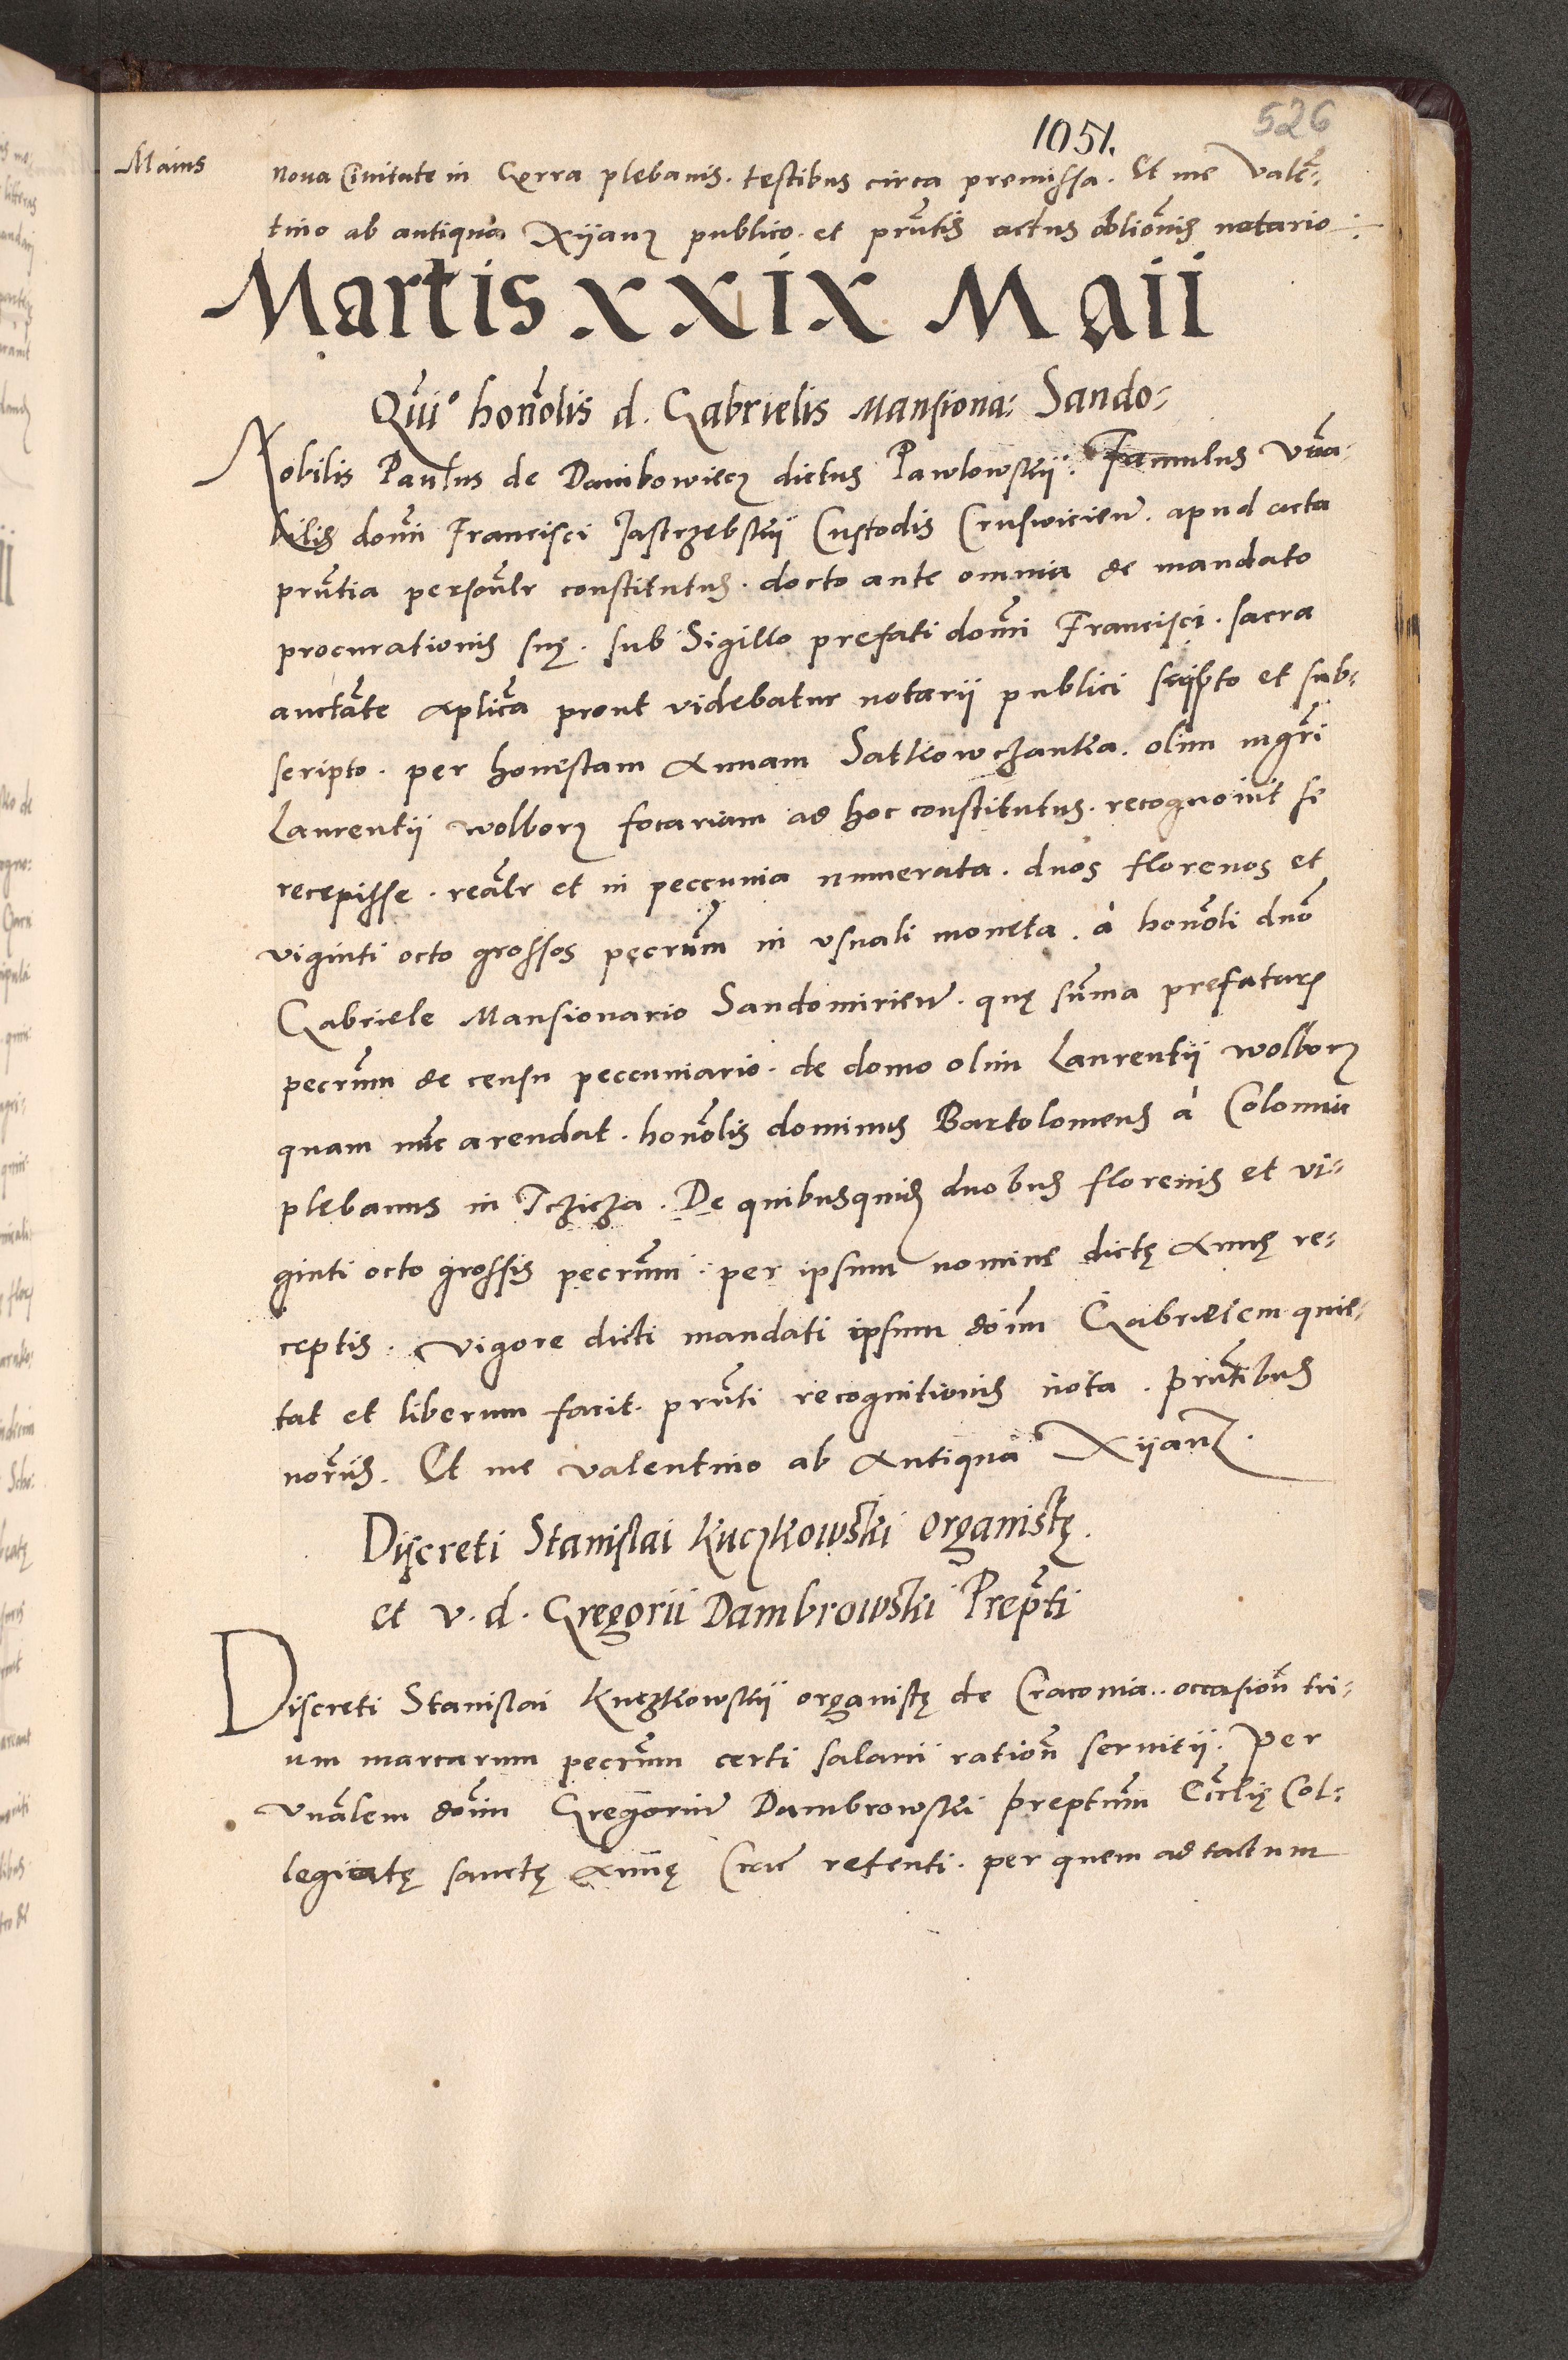 1051.
526
Maius
noua Ciuitate in Gorra plebanis. testibus circa premissa. Et me Valē-
tino ab antiqua Xijanz publico. et prn̄tis actus obliōnis notario
Martis XXIX Maii
Quit° honōlis d. Gabrielis Mansiona: Sando-
Nobilis Paulus de Dambowiecz dictus Pawlowskij. Famulus Vn̄a-
bilis domī Francisci Jastrzebskij Custodis Cruswicien̄. apud acta
prn̄tia persoalr̄ constitutus. docto ante omnia de mandato
procurationis suę. sub Sigillo prefati domī Francisci. sacra
auctāte aplicā prout videbatur notarii publici scripto et sub-
scripto. per honestam Annam Satkowczanka. olim mgrī
Laurentij Wolborz focariam ad hoc constitutus. recognouit se
recepisse. reālr et in peccunia numerata. duos florenos et
viginti octo grossos pęcrūm in vsuali moneta. à honōli dnō
Gabriele Mansionario Sandomirien̄. quę sūma prefatarū
pecrūm de censu peccuniario. de domo olim Laurentij Wolborz
quam nūc arendat. honōlis dominus Bartolomeus à Colomia
plebanus in Tczicza. De quibusquid duobus florenis et vi-
ginti octo grossis pecrūm. per ipsum nomine dictę Annę re-
ceptis. vigore dicti mandati ipsum doīm Gabrielem quie-
tat et liberum facit. prn̄ti recognitionis nota. prn̄tibus
norīis. Et me Valentino ab Antiqua Xijanz.
Discreti Stanislai Kuczkowski organistę.
et v. d. Gregorii Dambrowski Prep̄ti
Discreti Stanislai Kuczkowskij organistę de Cracouia. occasioñ tri-
um marcarum pecrūm certi salarii ratioñ seruitij. Per
vnālem doīm Gregoriū Dambrowski preptūm Ecc̄lię Col-
legiatę sanctę Annę Crac̄ retenti. per quem ad tactum